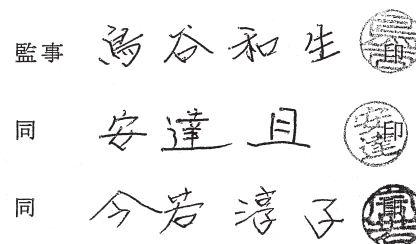 監事 鳥谷和生 印
同 安達 旦 印
同 今若淳子 印